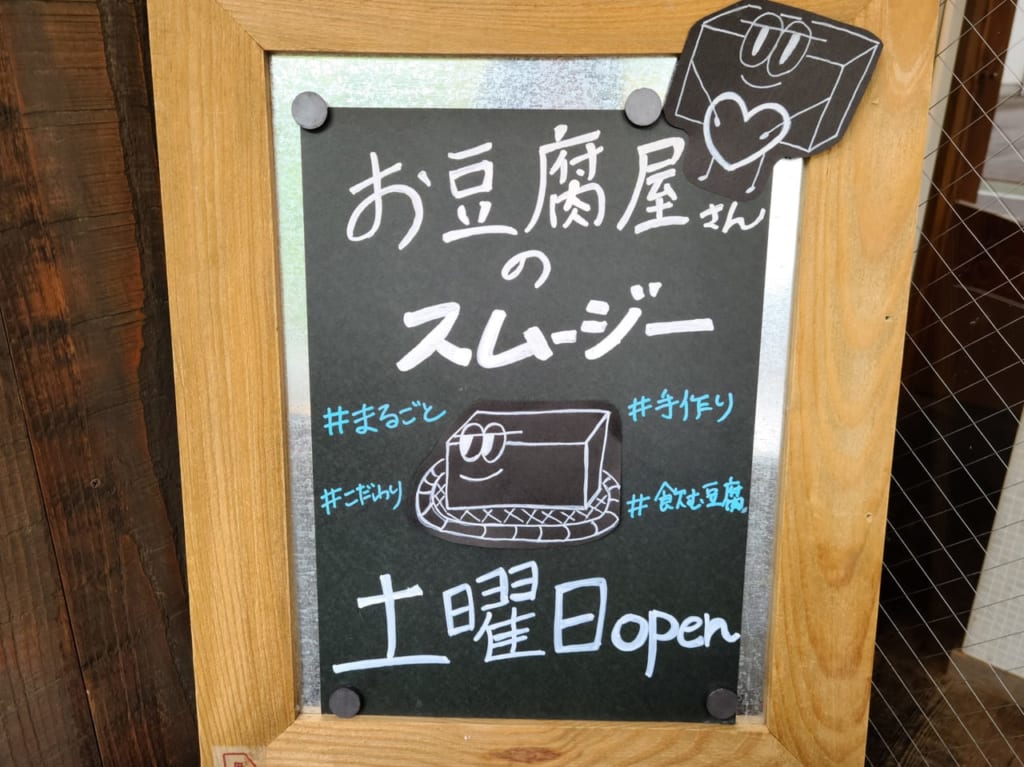 お豆腐屋さん
の
スムージー
#まるごと #手作り
#こだわり #飲む豆腐
土曜日open